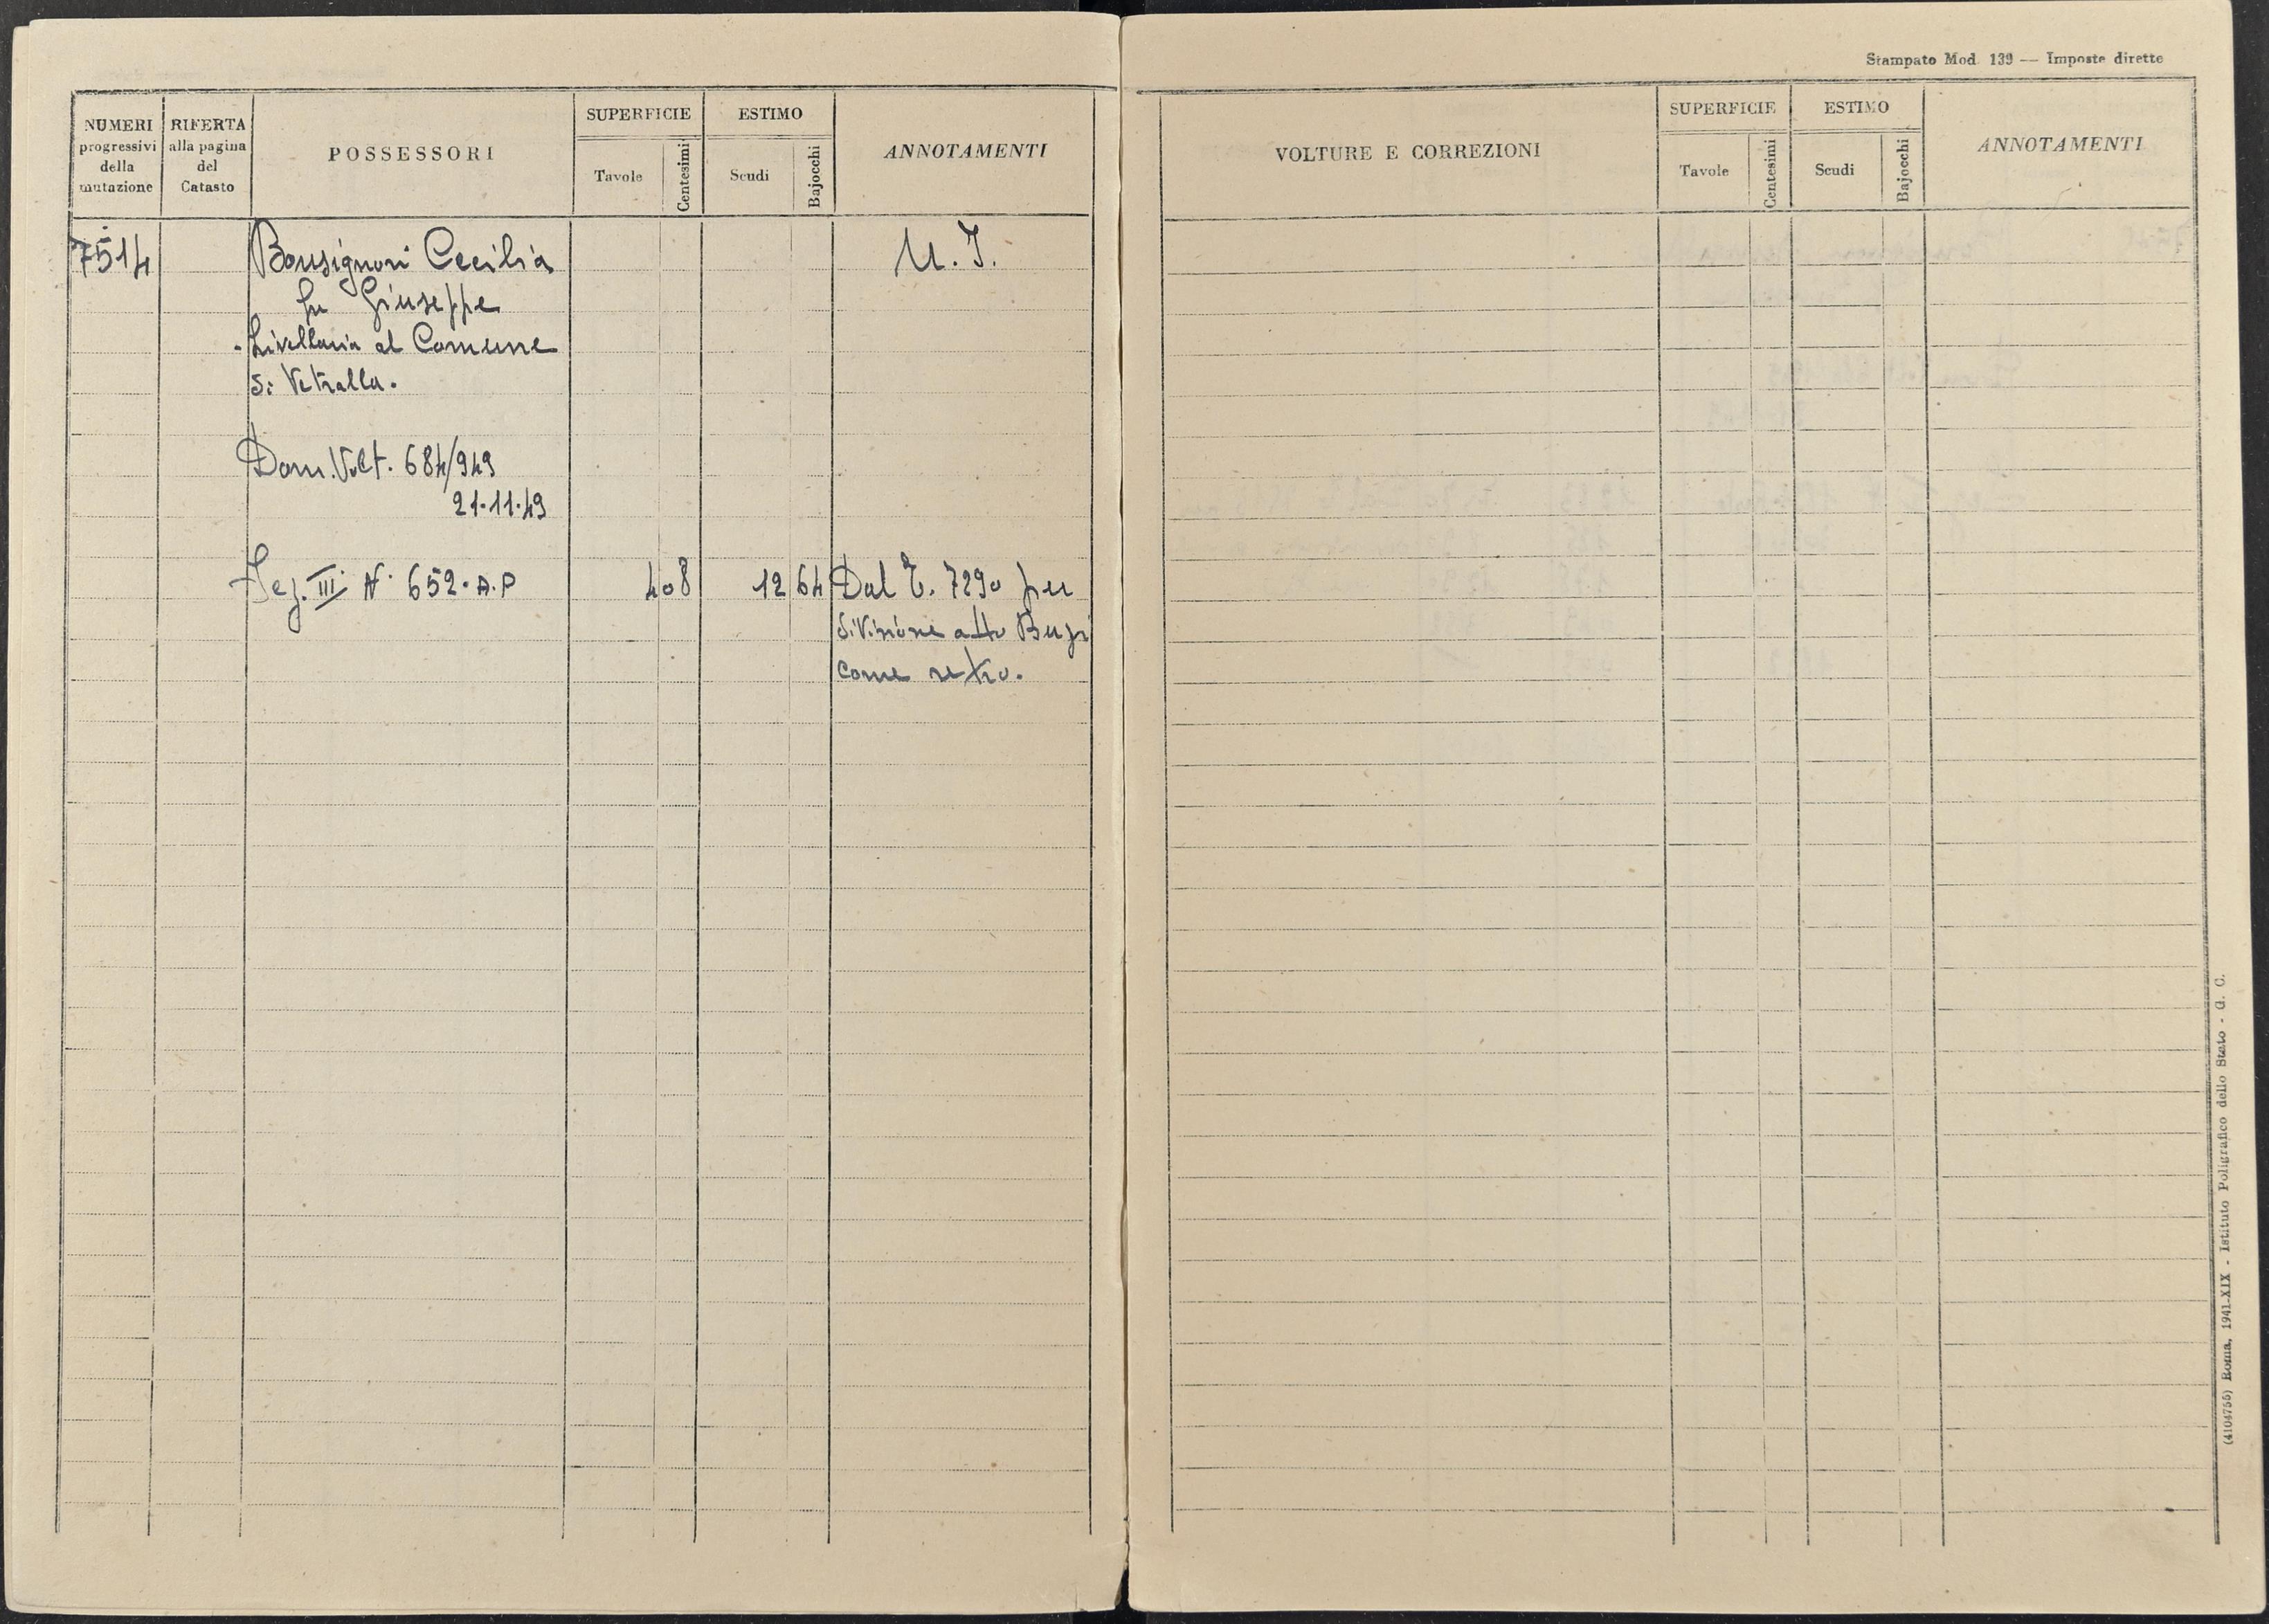 NUMERI
progressivi
della
mutazione
RIFERTA
alla pagina
del
Catasto
POSSESSORI
SUPERFICIE
Tavole
Centesimi
ESTIMO
Scudi
Bajocchi
ANNOTAMENTI
7514
Bonsignori Cecilia
U. I.
fu Giuseppe
Livellaria al Comune
di Vetralla.
Dom. Volt. 684/949
21.11.49
Sez. III N. 652. A.P
4 08
12 64
Dal T. 7290 per
divisione atto Busi
come retro.
Stampato Mod. 139 — Imposte dirette
VOLTURE E CORREZIONI
SUPERFICIE
Tavole
Centesimi
ESTIMO
Scudi
Bajocchi
ANNOTAMENTI
(4104755) Roma, 1941-XIX - Istituto Poligrafico dello Stato - G. C.